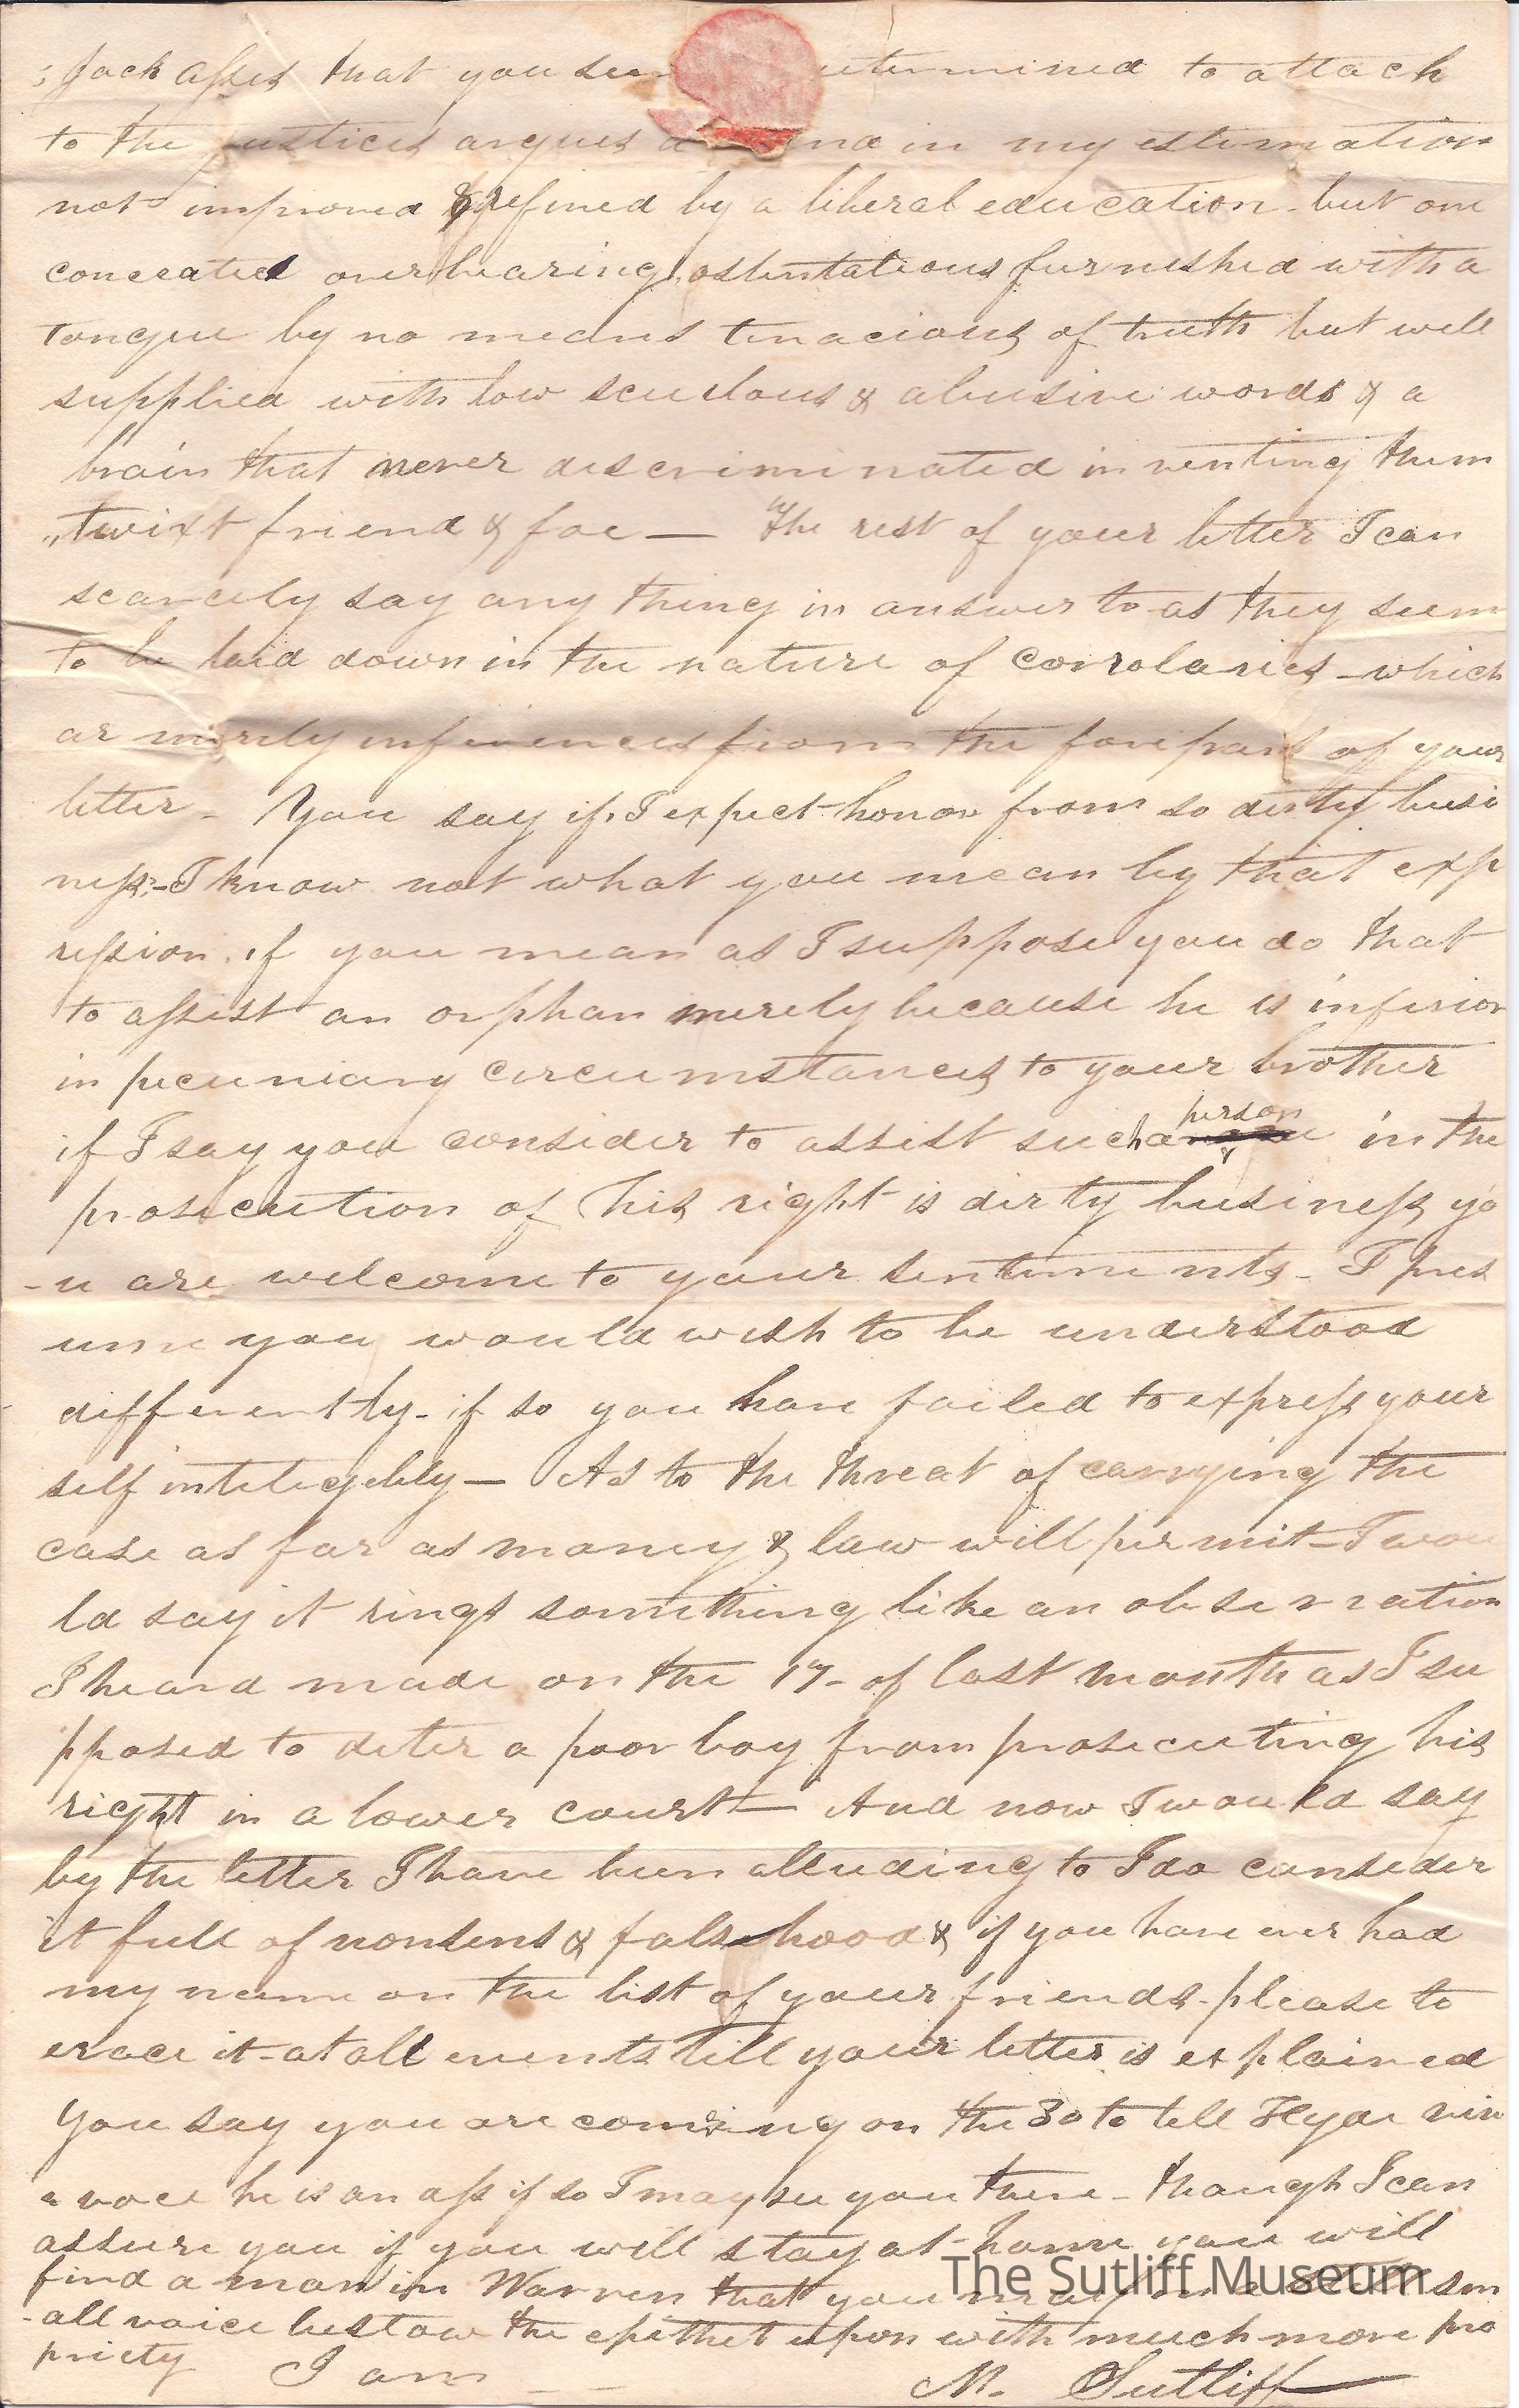 ; Jack asses that you see etermined to attach
to the justices argues a ind in my estimation
not improved & refined by a liberal education - but one
conceated overbearing ostentatious furneshed with a
tongue by no means tenacious of truth but well
supplied with low scurlous & abusive words & a
brain that never descriminated in venting them
"twixt friend & foe — The rest of your letter I can
scarcely say any thing in answer to as they seem
to be laid down in the nature of corrolaries - which
ar merely inferences from the forepart of your
letter - You say if I expect honor from so dirty busi
ness - I know not what you mean by that exp
ression. if you mean as I suppose you do that
to assist an orphan merely because he is inferior
in pecuniary circumstances to your brother
if I say you consider to assist such a person in the
prosecution of his right is dirty business yo
-u are welcome to your sentiments - I pres
ume you would wish to be understood
differently - if so you have failed to express your
self intelegebly — As to the threat of carrying the
case as far as money & law will permit - I wou
ld say it rings something like an observation
I heard made on the 17- of last month as I su
pposed to deter a poor boy from prosecuting his
right in a lower court — And now I would say
by the letter I have been alluding to I do consider
it full of nonsens & falsehood & if you have ever had
my name on the list of your friends - please to
erace it - at all events till your letter is explained
You say you are coming on the 30 to tell Hyde viv
a voce he is an ass if so I may see you there - though I can
assure you if you will stay at home you will
find a man in Warren that you may sm
-all voice bestow the epithet upon with much more pro
priety I am — —
M. Sutliff
The Sutliff Museum